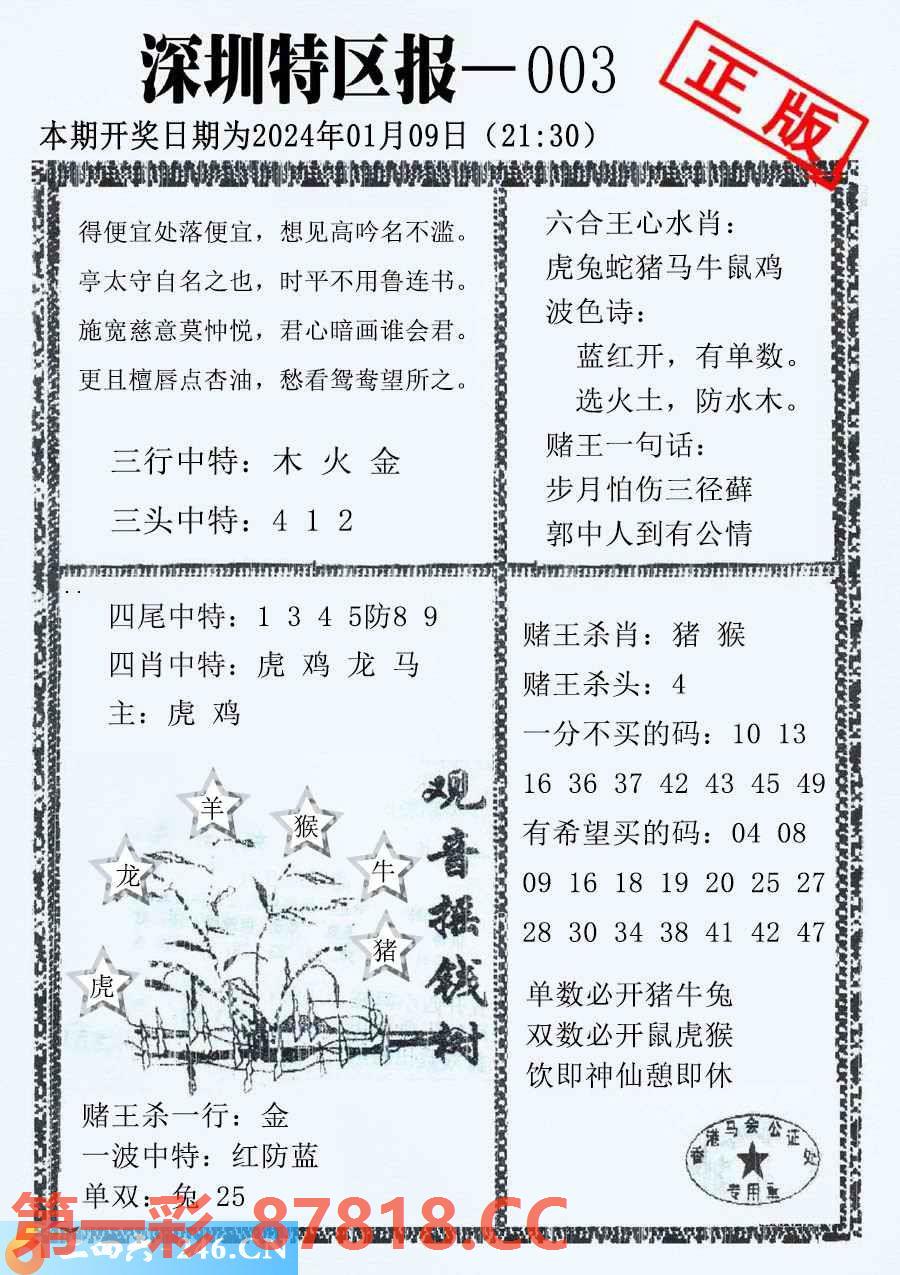 深圳特区报—003
正版
本期开奖日期为2024年01月09日（21:30）
得便宜处落便宜，想见高吟名不滥。
亭太守自名之也，时平不用鲁连书。
施宽慈意莫忡悦，君心暗画谁会君。
更且檀唇点杏油，愁看鸳鸯望所之。
三行中特：木 火 金
三头中特：4 1 2
六合王心水肖：
虎兔蛇猪马牛鼠鸡
波色诗：
蓝红开，有单数。
选火土，防水木。
赌王一句话：
步月怕伤三径藓
郭中人到有公情
四尾中特：1 3 4 5防8 9
四肖中特：虎 鸡 龙 马
主：虎 鸡
观音摇钱树
羊
猴
龙
牛
猪
虎
赌王杀一行：金
一波中特：红防蓝
单双：兔 25
赌王杀肖：猪 猴
赌王杀头：4
一分不买的码：10 13
16 36 37 42 43 45 49
有希望买的码：04 08
09 16 18 19 20 25 27
28 30 34 38 41 42 47
单数必开猪牛兔
双数必开鼠虎猴
饮即神仙憩即休
香港马会公证处
专用章
第一彩 87818.CC
246.CN